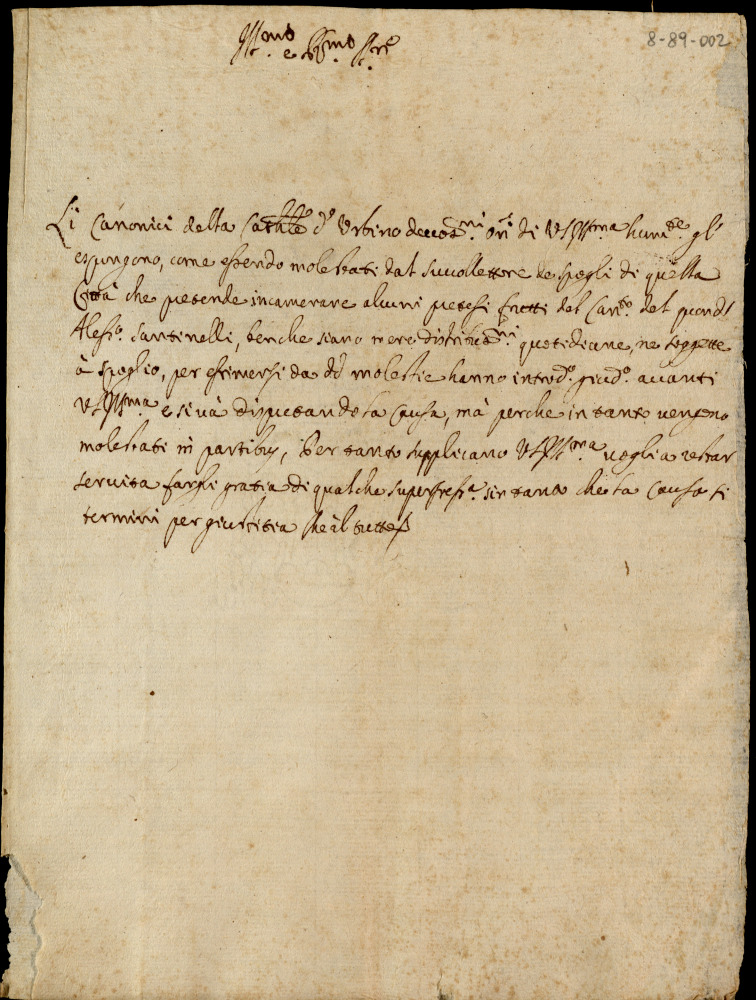 8-89-002
Ill.mo e R.mo Sig.re
Li Canonici della Cath.le d'Urbino devot.mi ori di VS Ill.ma humil.te gl'
espongono, come essendo molestati dal succollettore de spogli di quella
Città che pretende incamerare alcuni pretesi frutti del Can.to del quond.
Aless.o Santinelli, benche siano mere distribut.ni quotidiane, ne soggette
à spoglio, per esimersi da d.e molestie hanno introd.o giud.o avanti
VS Ill.ma e si và disputando la Causa, mà perche in tanto vengono
molestati in partibus, Per tanto supplicano VS Ill.ma voglia restar
servita farli gratia di qualche sopress.a sin tanto che la Causa si
termini per giustitia che il tutto